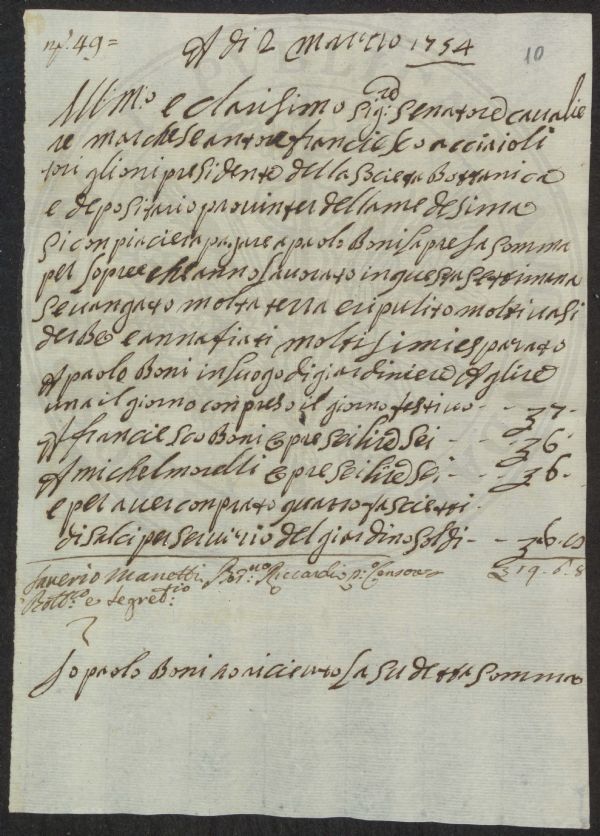 nº. 49 =
A di 2 marcio 1754
10
Ill: m:o e clarisimo Sig:re Senatore cavalie
re marchese antone franciesco acciaioli
torigli oni presidente della Societa Bottanica
e depositario provinter della me desima
Si conpiaciera pagare a paolo Boni la presa Somma
per lopree che anno lavorato in questa Settimana
Sevangato molta terra e ripulito molti vasi
der Be e annafiati moltisimi e sparato
A paolo Boni in luogo di giardiniere A glire
una il giorno conpreso il giorno festivo - - 7 -
A franciesco Boni opre sei lire Sei - - 6 -
A michel morelli opre sei lire Sei - - 6 -
e per aver conprato quatro fascietti
di Salci per Servirio del giardino Soldi - - 6 -
Saverio Manetti B:no Riccardi p:o Censore 19 - 6 - 8
Bott:co e Segret:rio
Io paolo Boni o ricieuto la Sudetta Somma